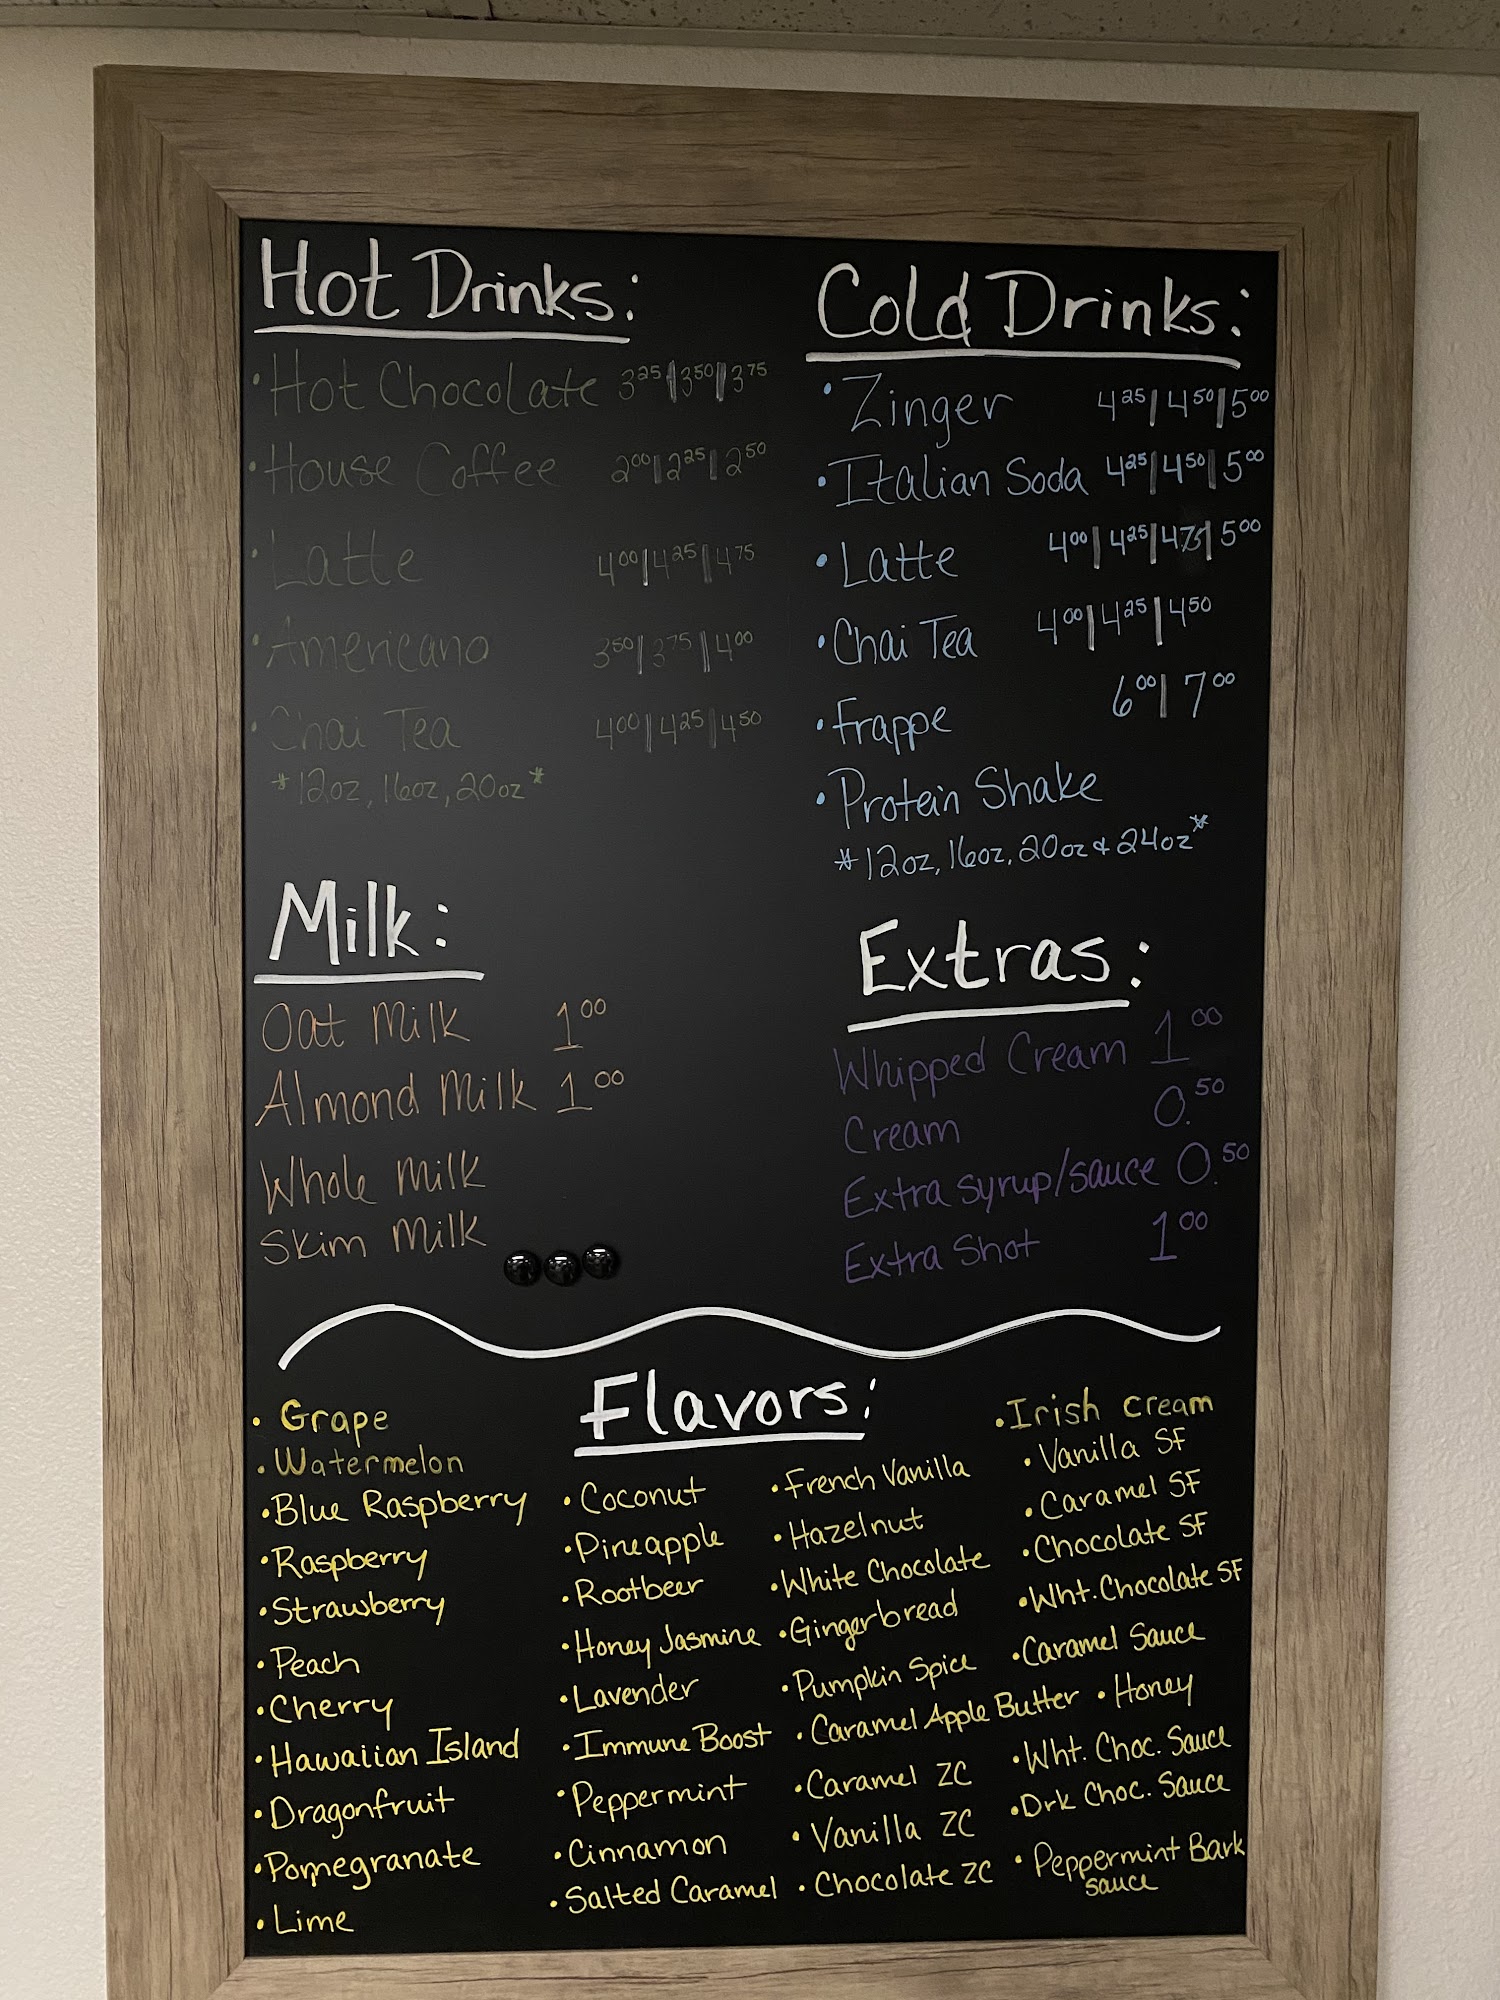 Hot Drinks:
• Hot Chocolate 3²⁵|3⁵⁰|3⁷⁵
• House Coffee 2⁰⁰|2²⁵|2⁵⁰
• Latte 4⁰⁰|4²⁵|4⁷⁵
• Americano 3⁵⁰|3⁷⁵|4⁰⁰
• Chai Tea 4⁰⁰|4²⁵|4⁵⁰
*12oz, 16oz, 20oz*
Cold Drinks:
• Zinger 4²⁵|4⁵⁰|5⁰⁰
• Italian Soda 4²⁵|4⁵⁰|5⁰⁰
• Latte 4⁰⁰|4²⁵|4⁷⁵|5⁰⁰
• Chai Tea 4⁰⁰|4²⁵|4⁵⁰
• Frappe 6⁰⁰|7⁰⁰
• Protein Shake
*12oz, 16oz, 20oz & 24oz*
Milk:
Oat Milk 1⁰⁰
Almond Milk 1⁰⁰
Whole Milk
Skim Milk
Extras:
Whipped Cream 1⁰⁰
Cream 0.⁵⁰
Extra syrup/sauce 0.⁵⁰
Extra Shot 1⁰⁰
Flavors:
• Grape
• Watermelon
• Blue Raspberry
• Raspberry
• Strawberry
• Peach
• Cherry
• Hawaiian Island
• Dragonfruit
• Pomegranate
• Lime
• Coconut
• Pineapple
• Rootbeer
• Honey Jasmine
• Lavender
• Immune Boost
• Peppermint
• Cinnamon
• Salted Caramel
• French Vanilla
• Hazelnut
• White Chocolate
• Gingerbread
• Pumpkin Spice
• Caramel Apple Butter
• Caramel ZC
• Vanilla ZC
• Chocolate ZC
• Irish Cream
• Vanilla SF
• Caramel SF
• Chocolate SF
• Wht. Chocolate SF
• Caramel Sauce
• Honey
• Wht. Choc. Sauce
• Drk Choc. Sauce
• Peppermint Bark
sauce